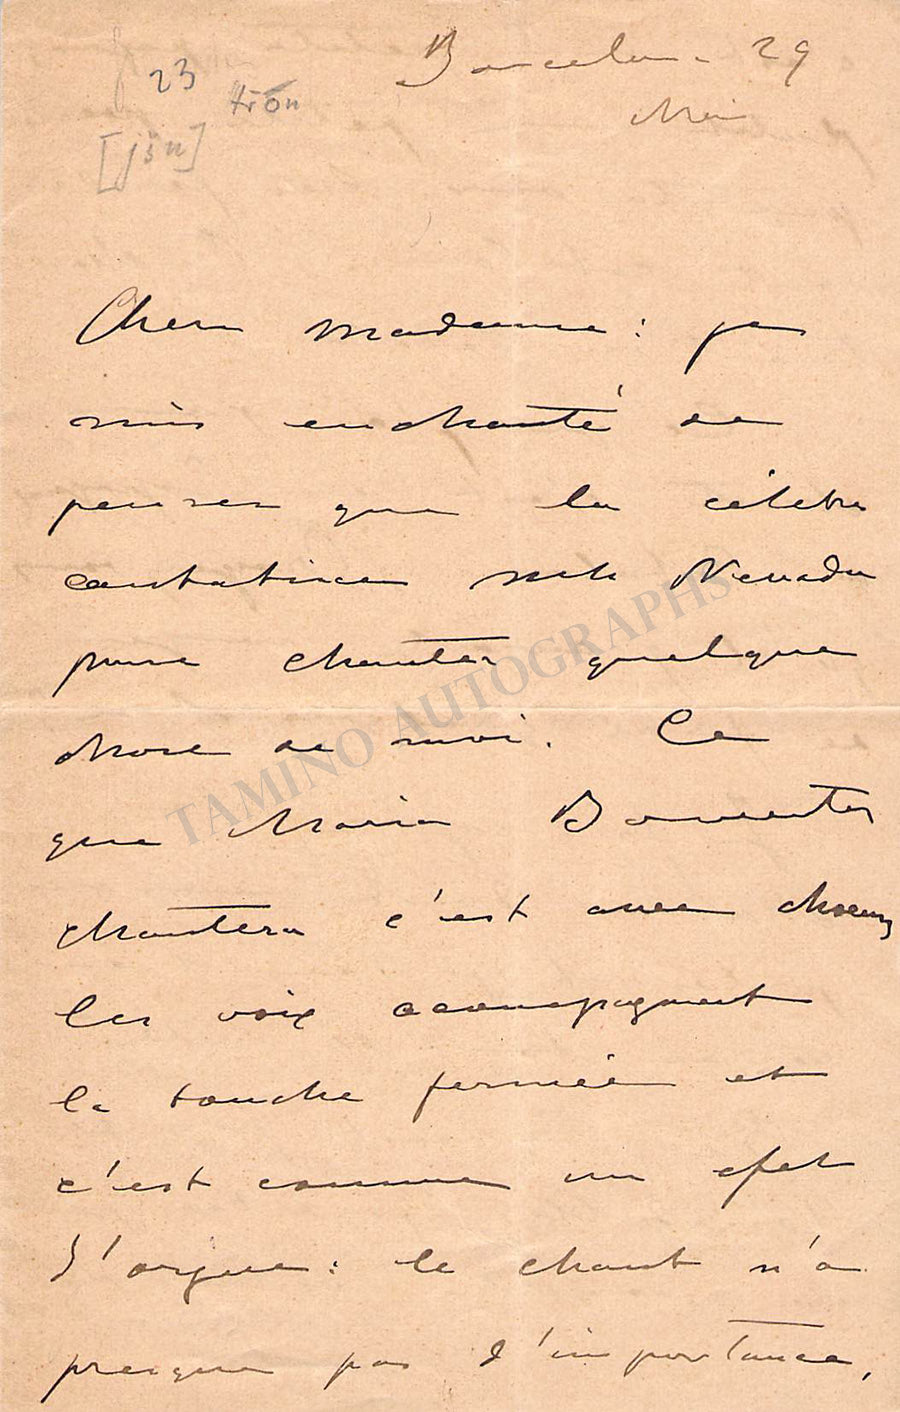 23
tron
[jun]
Barcelona 29
Mai
Chere madame : je
suis enchanté de
penser que la célebre
cantatrice Nevada
puise chanter quelque
chose de moi. Ce
que Maria
chantera c'est avec choeurs
les voix acompagnent
la bouche fermée et
c'est comme un efet
d'orgue : le chant n'a
presque pas d'importance,
TAMINO AUTOGRAPHS